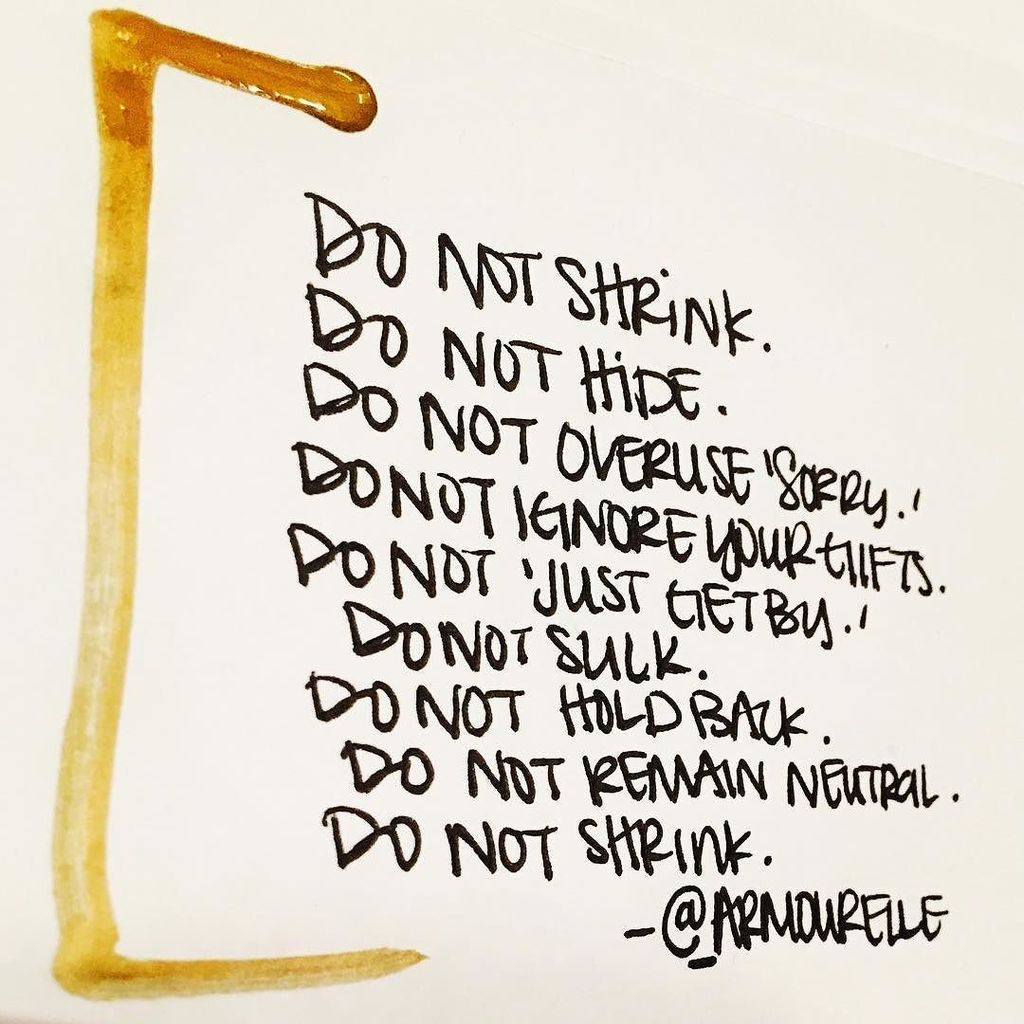 DO NOT SHRINK.
DO NOT HIDE.
DO NOT OVERUSE 'SORRY.'
DO NOT IGNORE YOUR GIFTS.
DO NOT 'JUST GET BY.'
DO NOT SULK.
DO NOT HOLD BACK.
DO NOT REMAIN NEUTRAL.
DO NOT SHRINK.
-@ARMOURELLE